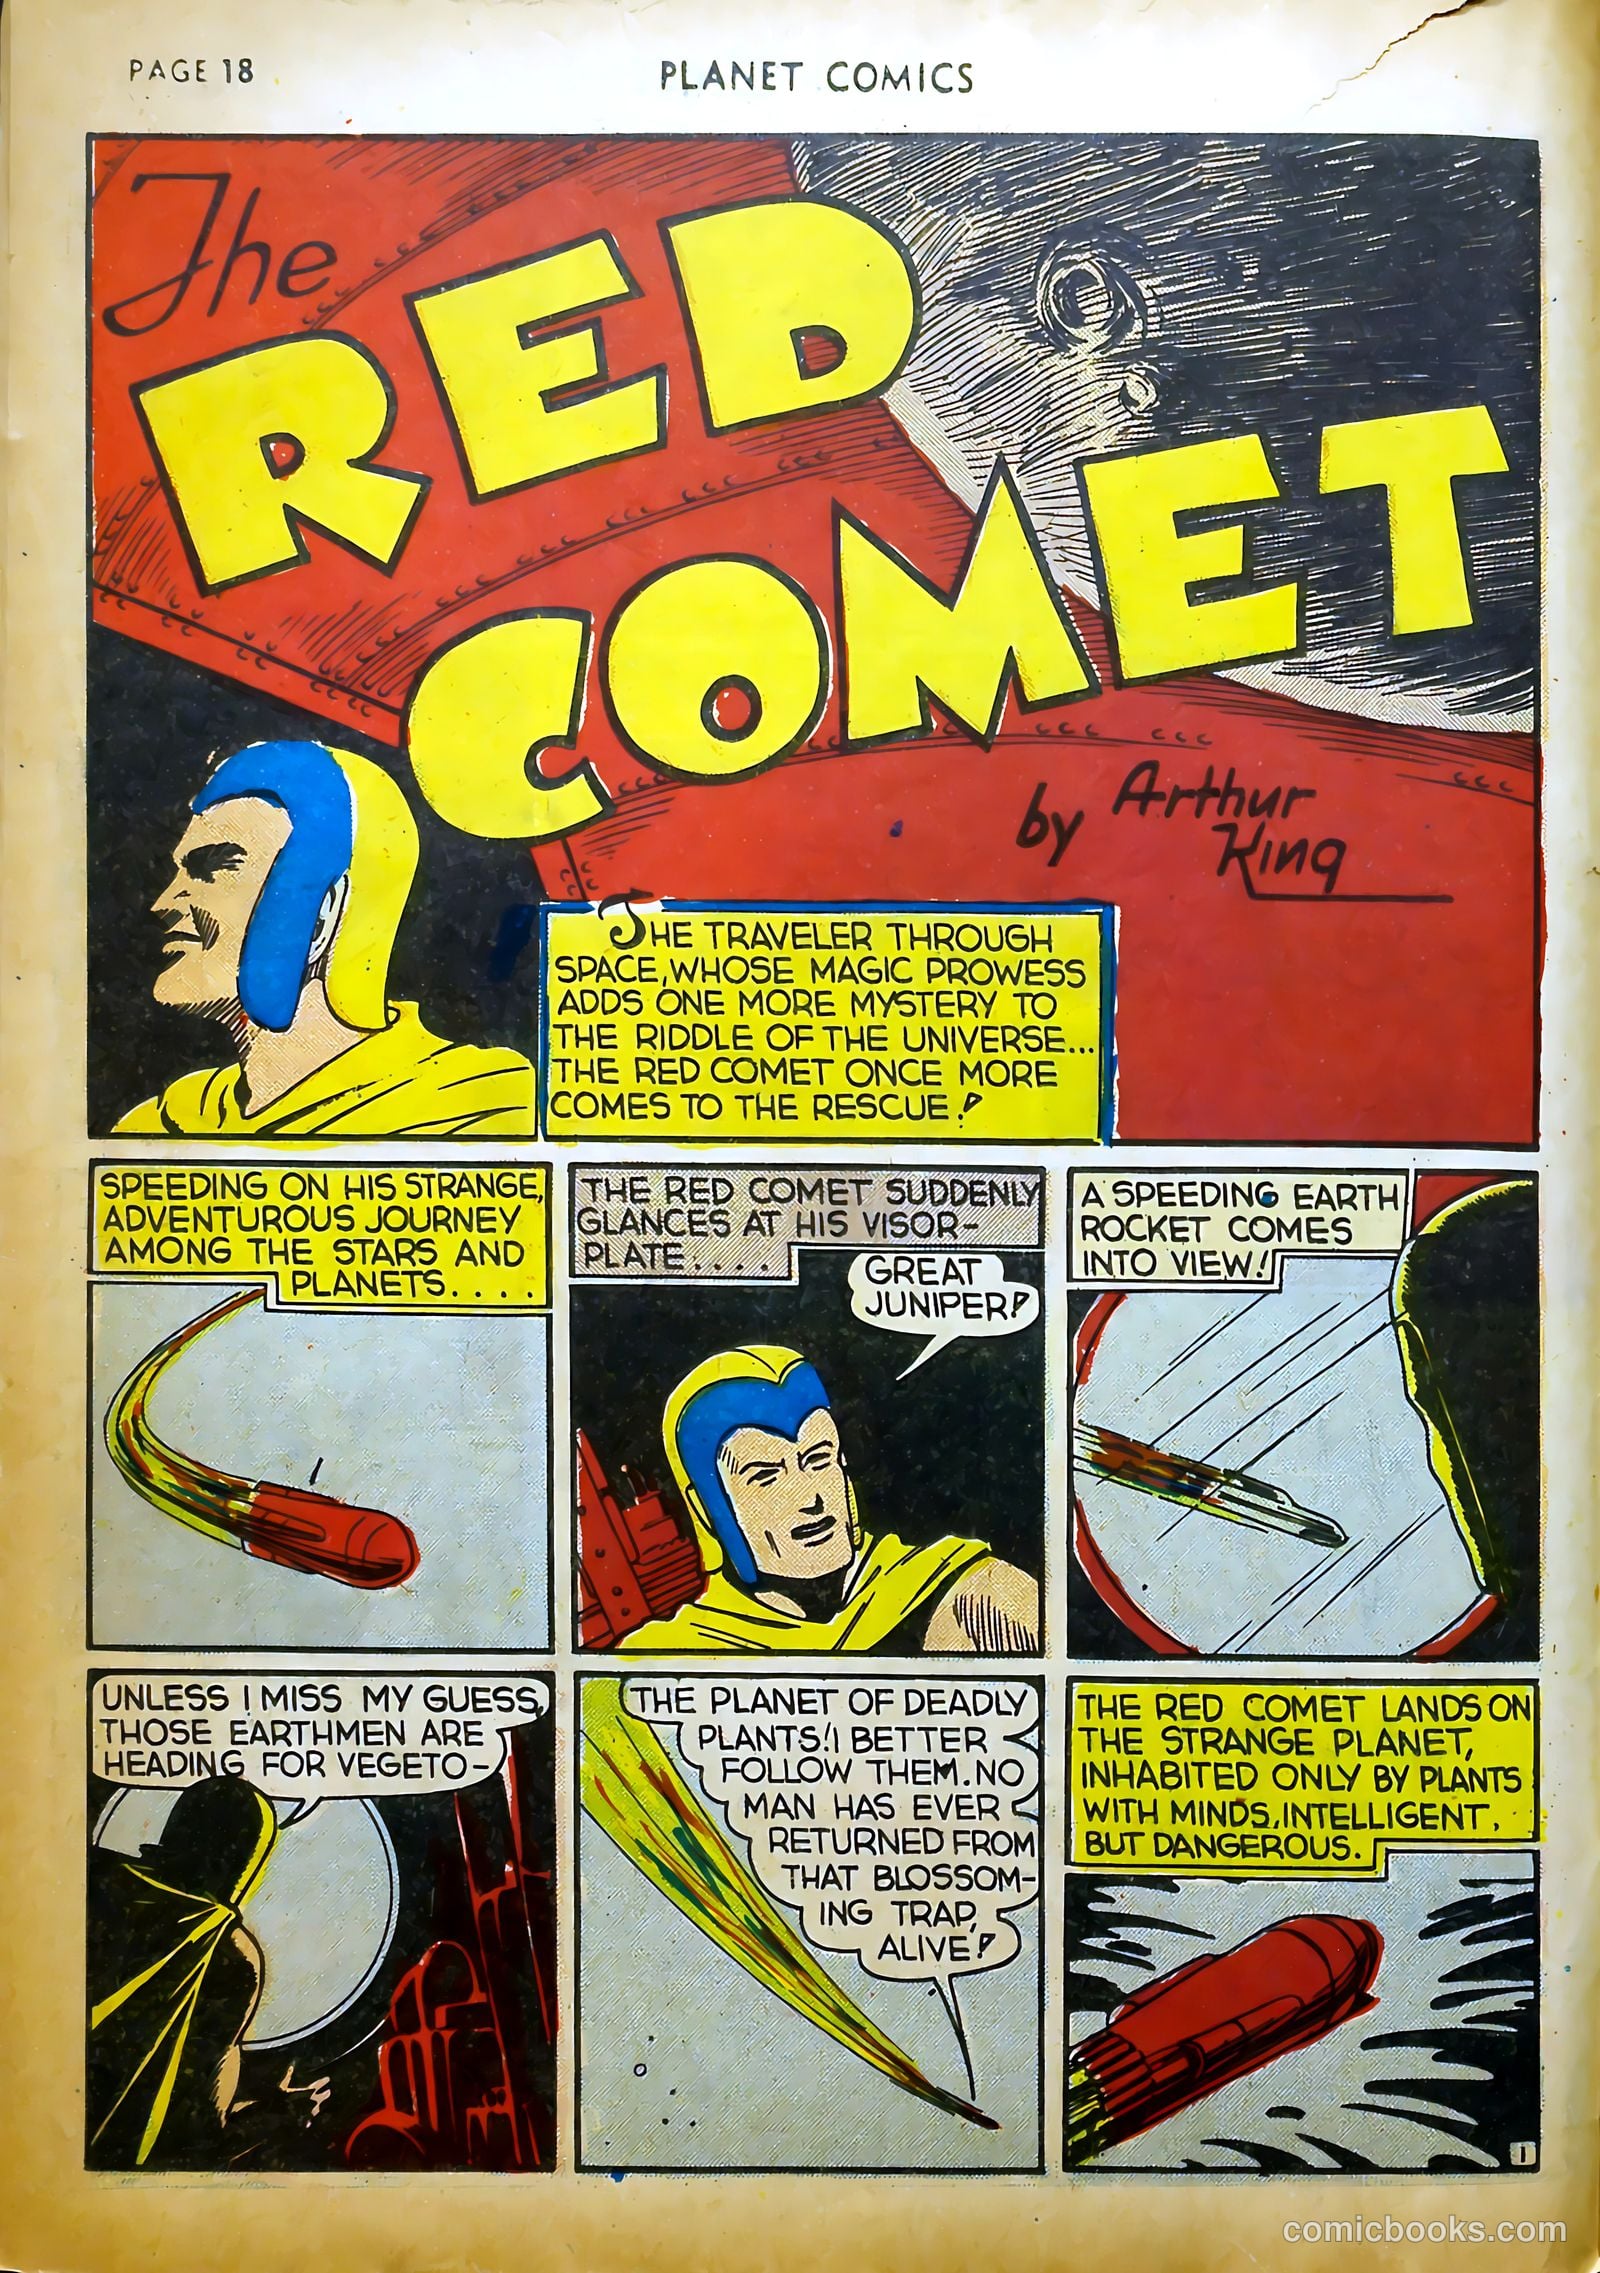 PAGE 18
PLANET COMICS
The
RED
COMET
by Arthur
King
THE TRAVELER THROUGH
SPACE, WHOSE MAGIC PROWESS
ADDS ONE MORE MYSTERY TO
THE RIDDLE OF THE UNIVERSE...
THE RED COMET ONCE MORE
COMES TO THE RESCUE!
SPEEDING ON HIS STRANGE,
ADVENTUROUS JOURNEY
AMONG THE STARS AND
PLANETS....
THE RED COMET SUDDENLY
GLANCES AT HIS VISOR-
PLATE....
GREAT
JUNIPER!
A SPEEDING EARTH
ROCKET COMES
INTO VIEW!
UNLESS I MISS MY GUESS,
THOSE EARTHMEN ARE
HEADING FOR VEGETO-
THE PLANET OF DEADLY
PLANTS! I BETTER
FOLLOW THEM. NO
MAN HAS EVER
RETURNED FROM
THAT BLOSSOM-
ING TRAP,
ALIVE!
THE RED COMET LANDS ON
THE STRANGE PLANET,
INHABITED ONLY BY PLANTS
WITH MINDS, INTELLIGENT,
BUT DANGEROUS.
1
comicbooks.com